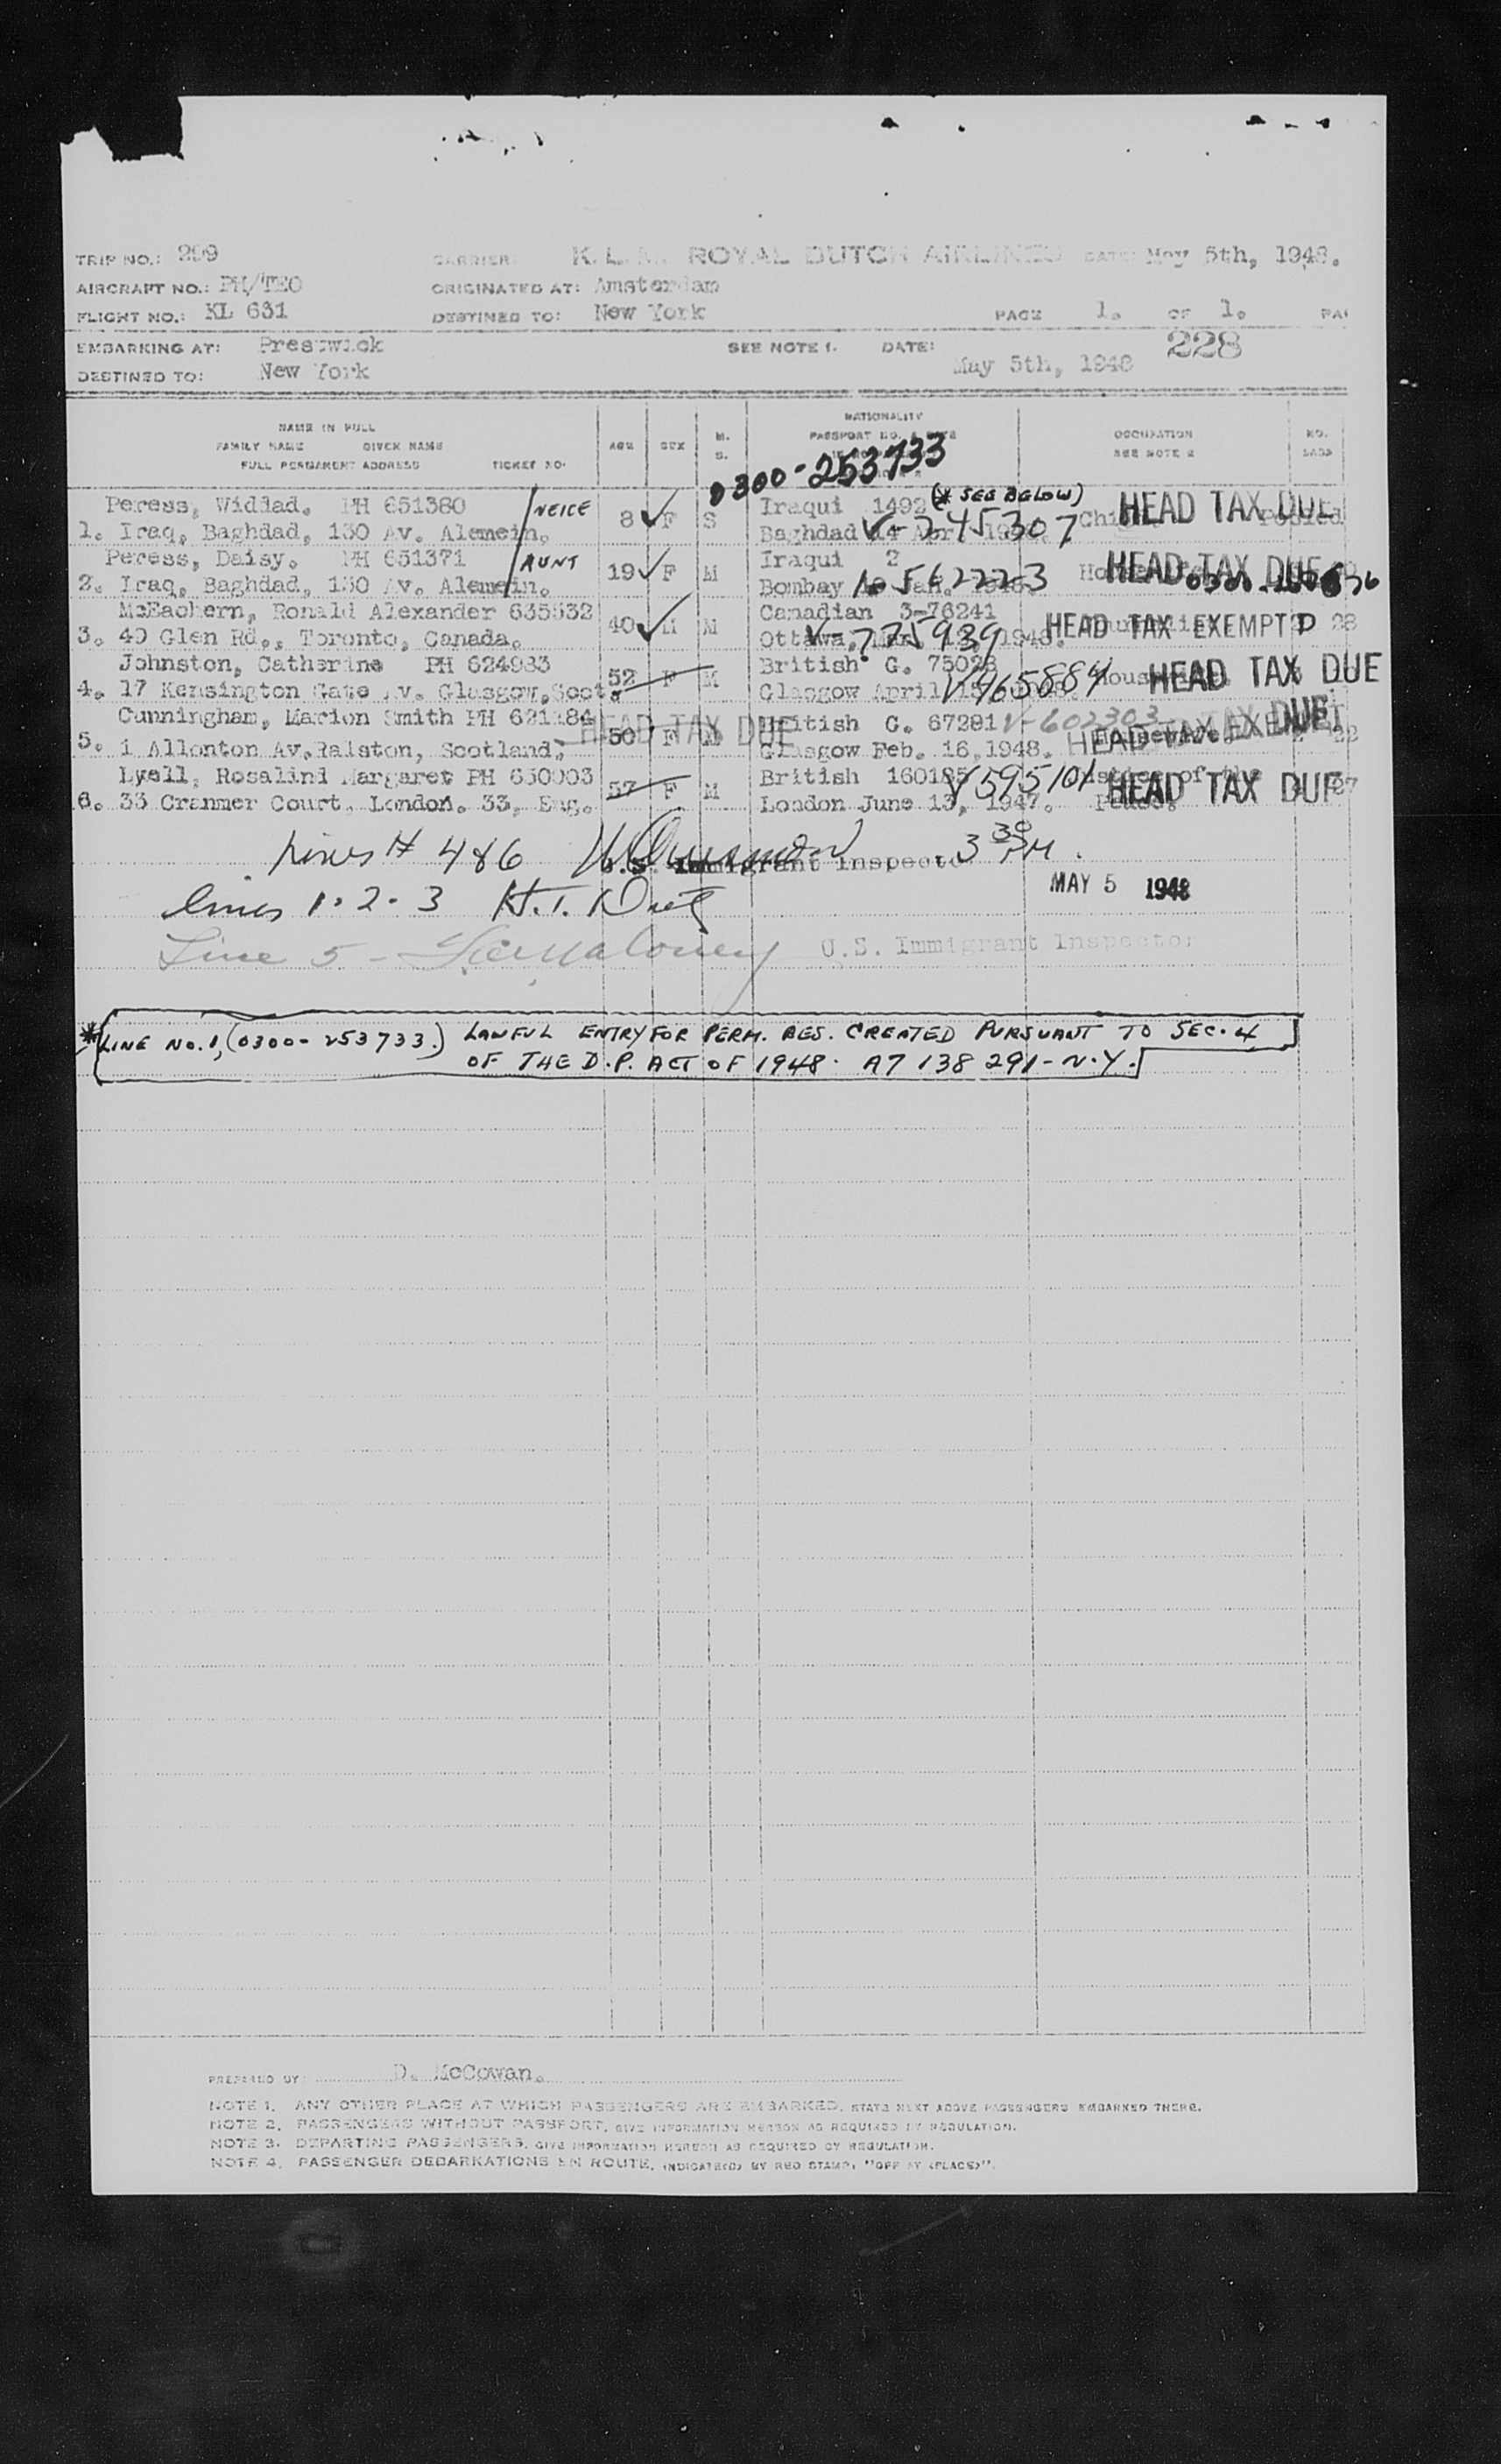 TRIP NO.: 299 CARRIER: K.L.M. ROYAL DUTCH AIRLINES DATE: May 5th, 1948.
AIRCRAFT NO.: PH/TEO ORIGINATED AT: Amsterdam
FLIGHT NO.: KL 631 DESTINED TO: New York PAGE 1. OF 1.
EMBARKING AT: Prestwick SEE NOTE 1. DATE: May 5th, 1948 228
DESTINED TO: New York
NAME IN FULL
FAMILY NAME GIVEN NAME
FULL PERMANENT ADDRESS TICKET NO.
AGE SEX M. S.
NATIONALITY
PASSPORT NO. & DATE
OCCUPATION
SEE NOTE 2
NO.
0300-253733
Peress, Widdad. PH 651380 NEICE 8 F S Iraqui 1492 (* SEE BELOW) HEAD TAX DUE
1. Iraq, Baghdad, 130 Av. Alemein, Baghdad V-245307
Peress, Daisy. PH 651371 AUNT 19 F M Iraqui 2 HEAD TAX DUE
2. Iraq, Baghdad, 130 Av. Alemein. Bombay Jan.
McEachern, Ronald Alexander 635532 40 M M Canadian 3-76241 HEAD TAX EXEMPT
3. 40 Glen Rd., Toronto, Canada. Ottawa, V-775939 1948. 28
Johnston, Catherine PH 624983 52 F M British G. 75028 HEAD TAX DUE
4. 17 Kensington Gate Av. Glasgow, Scot. Glasgow April V465884
Cunningham, Marion Smith PH 621184 HEAD TAX DUE 50 F British G. 67281 V-602303
5. 1 Allonton Av. Ralston, Scotland, Glasgow Feb. 16, 1948. HEAD TAX EXEMPT
Lyell, Rosalind Margaret PH 630003 57 F M British 160185 V595101 Justice of the HEAD TAX DUE
6. 33 Cranmer Court, London. 33, Eng. London June 13, 1947. Peace.
Lines # 4&6 U.S. Immigrant Inspector 3 30 PM.
MAY 5 1948
Lines 1-2-3 H.T. Due
Line 5 - U.S. Immigrant Inspector
* LINE NO. 1, (0300-253733.) LAWFUL ENTRY FOR PERM. RES. CREATED PURSUANT TO SEC. 4
OF THE D.P. ACT OF 1948. A7 138 291-N.Y.
PREPARED BY D. McCowan.
NOTE 1. ANY OTHER PLACE AT WHICH PASSENGERS ARE EMBARKED, STATE NEXT ABOVE PASSENGERS EMBARKED THERE.
NOTE 2. PASSENGERS WITHOUT PASSPORT, GIVE INFORMATION HEREON AS REQUIRED BY REGULATION.
NOTE 3. DEPARTING PASSENGERS, GIVE INFORMATION HEREON AS REQUIRED BY REGULATION.
NOTE 4. PASSENGER DEBARKATIONS EN ROUTE, INDICATE(D) BY RED STAMP, "OFF AT (PLACE)".